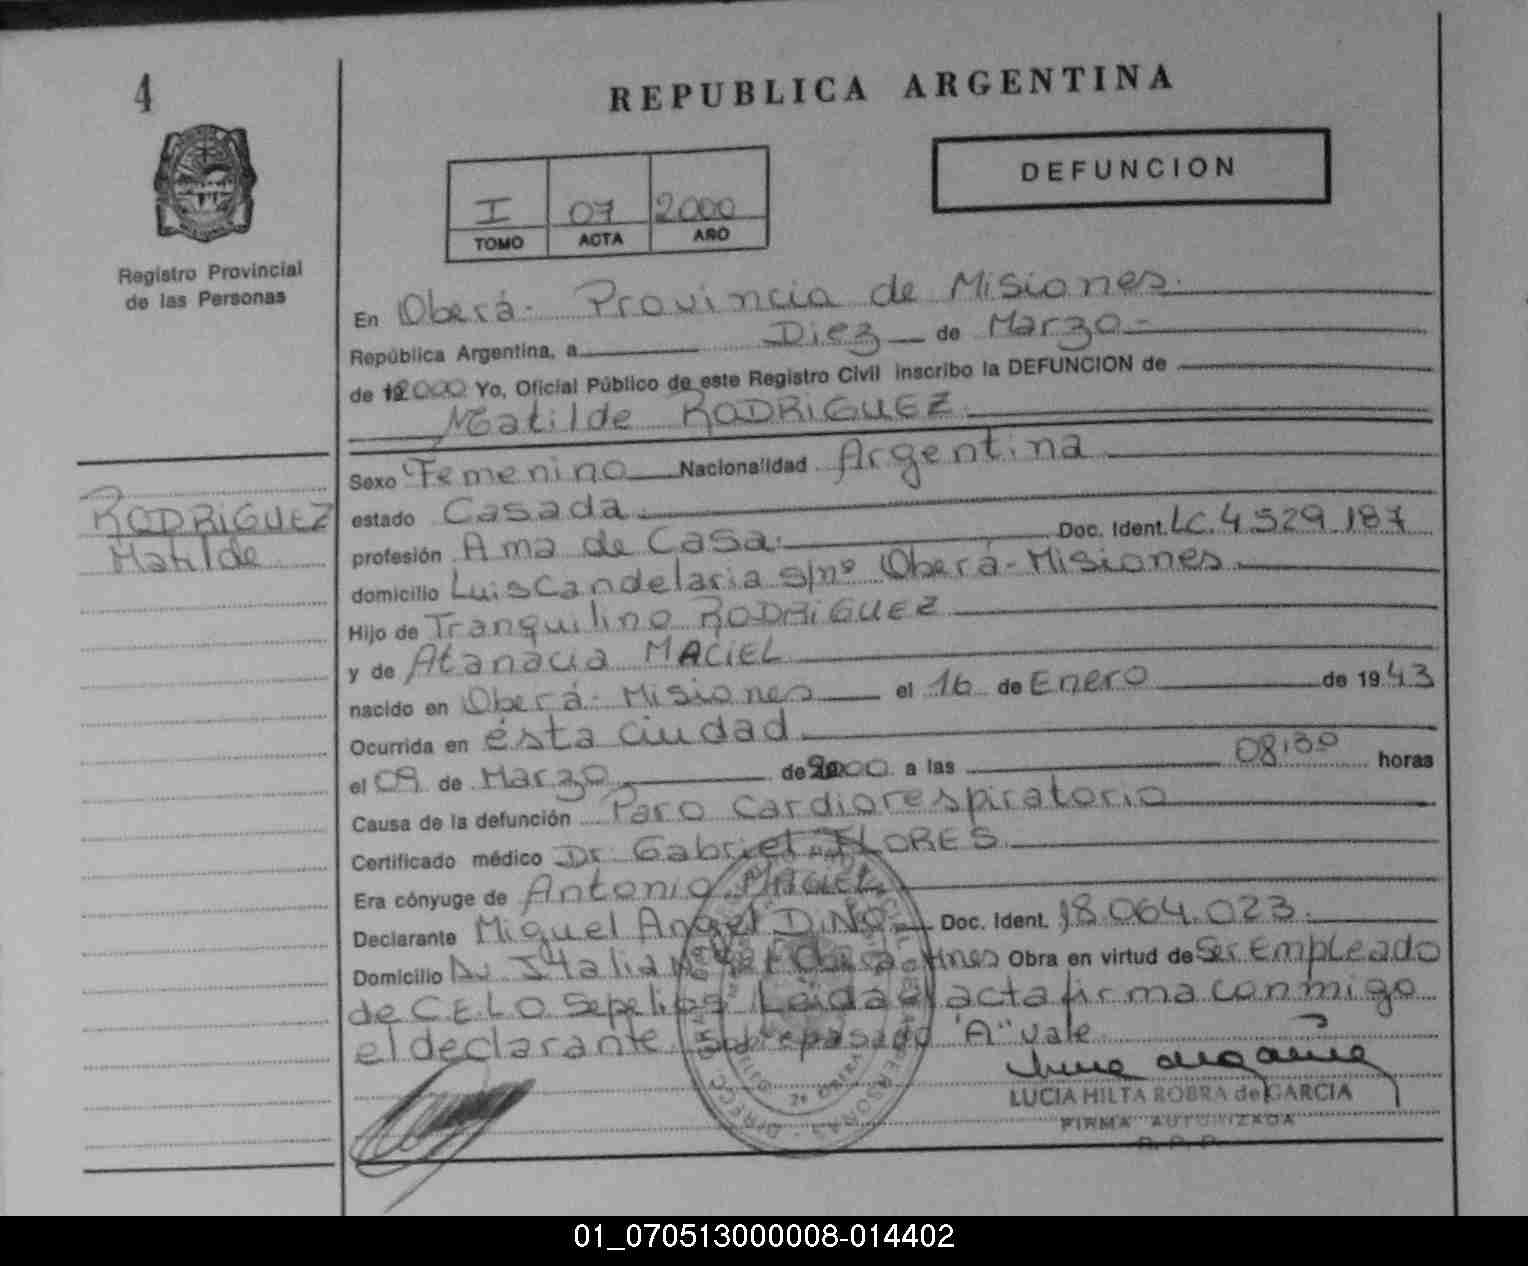 4
REPUBLICA ARGENTINA
DEFUNCION
I 07 2000
TOMO ACTA AÑO
Registro Provincial
de las Personas
En Oberá - Provincia de Misiones.
República Argentina, a Diez de Marzo -
de 2000 Yo, Oficial Público de este Registro Civil inscribo la DEFUNCION de
Matilde RODRIGUEZ.
Sexo Femenino Nacionalidad Argentina
RODRIGUEZ
Matilde
estado Casada.
profesión Ama de Casa. Doc. Ident. LC. 4.529.187
domicilio Luis Candelaria s/nº Oberá - Misiones
Hijo de Tranquilino RODRIGUEZ
y de Atanacia MACIEL
nacido en Oberá - Misiones el 16 de Enero de 1943
Ocurrida en ésta ciudad
el 09 de Marzo de 2000 a las 08:30 horas
Causa de la defunción Paro cardiorespiratorio
Certificado médico Dr. Gabriel FLORES
Era cónyuge de Antonio MACIEL
Declarante Miguel Angel DINO Doc. Ident. 18.064.023
Domicilio Av. Italia Oberá Mnes Obra en virtud de Ser Empleado
de C.E.L.O Sepelios Leída el acta firma conmigo
el declarante. Sobrepasado "A" Vale.
LUCIA HILTA ROBRA de GARCIA
FIRMA AUTORIZADA
R. P. P.
01_070513000008-014402